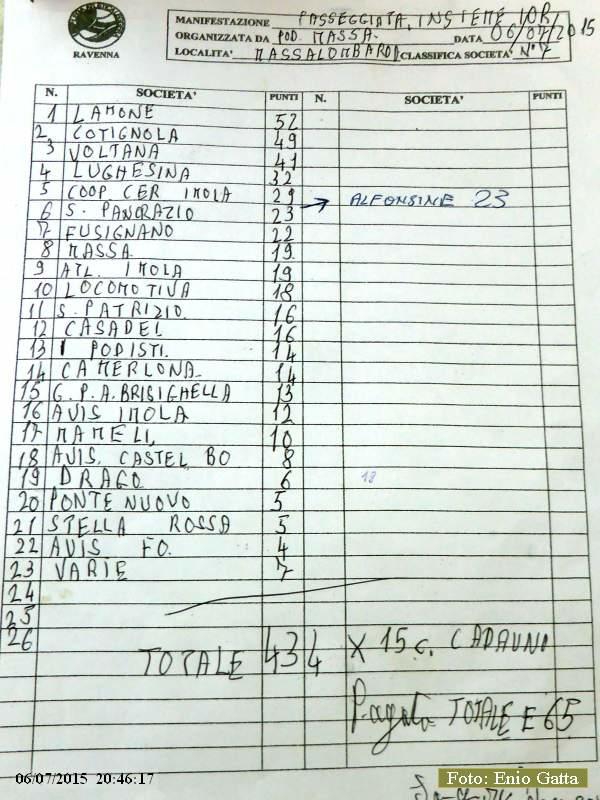 RAVENNA
MANIFESTAZIONE PASSEGGIATA INSIEME IOR
ORGANIZZATA DA POD. MASSA. DATA 06/07/2015
LOCALITA' MASSALOMBARDA CLASSIFICA SOCIETA' N° 7
N. SOCIETA' PUNTI N. SOCIETA' PUNTI
1 LAMONE 52
2 COTIGNOLA 49
3 VOLTANA 41
4 LUGHESINA 32
5 COOP CER IMOLA 29 → ALFONSINE 23
6 S. PANCRAZIO 23
7 FUSIGNANO 22
8 MASSA 19
9 ATL. IMOLA 19
10 LOCOMOTIVA 18
11 S. PATRIZIO 16
12 CASADEI 16
13 I PODISTI. 14
14 CAMERLONA 14
15 G.P.A. BRISIGHELLA 13
16 AVIS IMOLA 12
17 MAMELI 10
18 AVIS. CASTEL BO 8
19 DRAGO 6 18
20 PONTE NUOVO 5
21 STELLA ROSSA 5
22 AVIS FO. 4
23 VARIE 7
24
25
26
TOTALE 434 X 15 c. CADAUNO
Pagato TOTALE E 65
06/07/2015 20:46:17
Foto: Enio Gatta